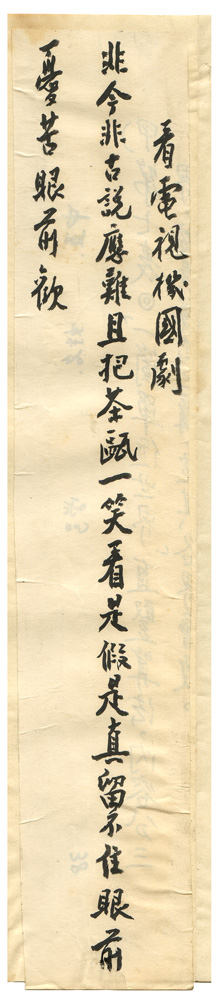 看電視機國劇
非今非古説應難且把茶甌一笑看是假是真留不住眼前
憂苦眼前歡